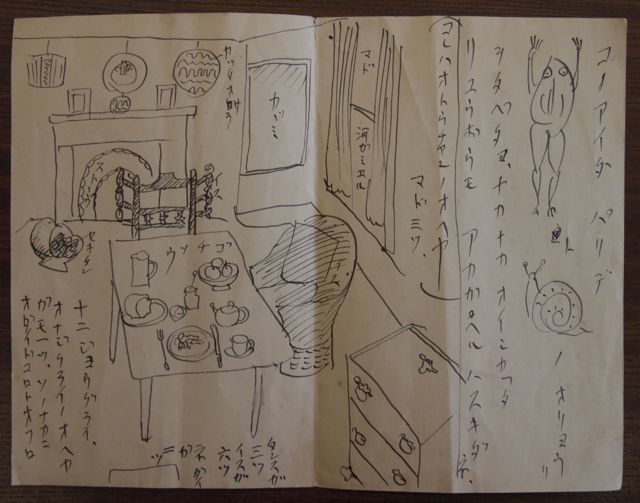 コノアイダ パリデ
ト ノ オリョウリ
ヲタベタヨ、ナカナカ オイシカッタ
リュウボウモ アカガヘル ハスキダネ、
コレハオトウサンノオヘヤ
マド三ツ、
マド
河ガミエル
カヾミ
イス
ゴチソウ
セキタン
タンスガ
三ツ
イスガ
六ツ
ガ
二ツ
十二ジョウグライ、
オナジクライノオヘヤ
ガモ一ツ、ソノナカニ
オダイドコロトオフロ